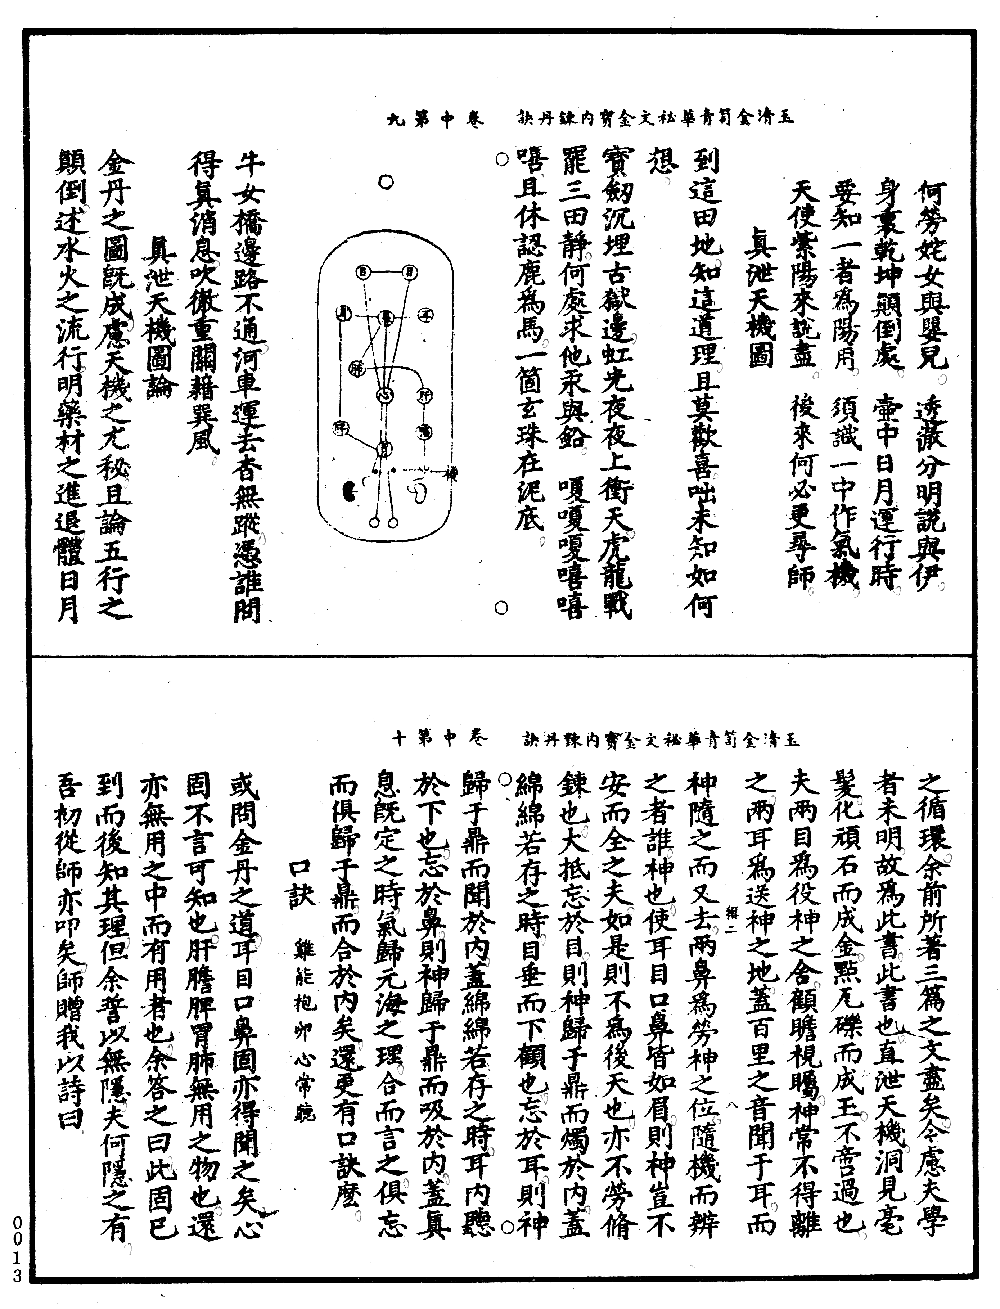 玉清金笥青華秘文金寶內鍊丹訣　卷中第九
何勞姹女與嬰兒　透徹分明說與伊
身裏乾坤顛倒處　壷中日月運行時
要知一者為陽用　須識一中作氣機
天使紫陽來說盡　後來何必更尋師
真泄天機圖
到這田地知這道理且莫歡喜咄未知如何
想
寶劒沉埋古獄邊虹光夜夜上衝天虎龍戰
罷三田靜何處求他汞與鉛　嗄嗄嗄嘻嘻
嘻且休認鹿為馬一箇玄珠在泥底
牛女橋邊路不通河車運去杳無蹤憑誰問
得真消息吹徹重關藉巽風
真泄天機圖論
金丹之圖既成慮天機之尤秘且論五行之
顛倒述水火之流行明藥材之進退體日月
玉清金笥青華秘文金寶內鍊丹訣　卷中第十
之循環余前所著三篇之文盡矣今慮夫學
者未明故為此書此書也直泄天機洞見毫
髮化頑石而成金㸃瓦礫而成玉不啻過也
夫兩目為役神之舍顧瞻視矚神常不得離
之兩耳為送神之地蓋百里之音聞于耳而
神隨之而又去兩鼻為勞神之位隨機而辨
之者誰神也使耳目口鼻皆如眉則神豈不
安而全之夫如是則不為後天也亦不勞脩
鍊也大抵忘於目則神歸于鼎而燭於內蓋
綿綿若存之時目垂而下顧也忘於耳則神
歸于鼎而聞於內蓋綿綿若存之時耳內聽
於下也忘於鼻則神歸于鼎而吸於內蓋真
息既定之時氣歸元海之理合而言之俱忘
而俱歸于鼎而合於內矣還更有口訣麽
口訣　雞能抱卵心常聽
或問金丹之道耳目口鼻固亦得聞之矣心
固不言可知也肝膽脾胃肺無用之物也還
亦無用之中而有用者也余答之曰此固已
到而後知其理但余誓以無隱夫何隱之有
吾初從師亦叩矣師贈我以詩曰
0013